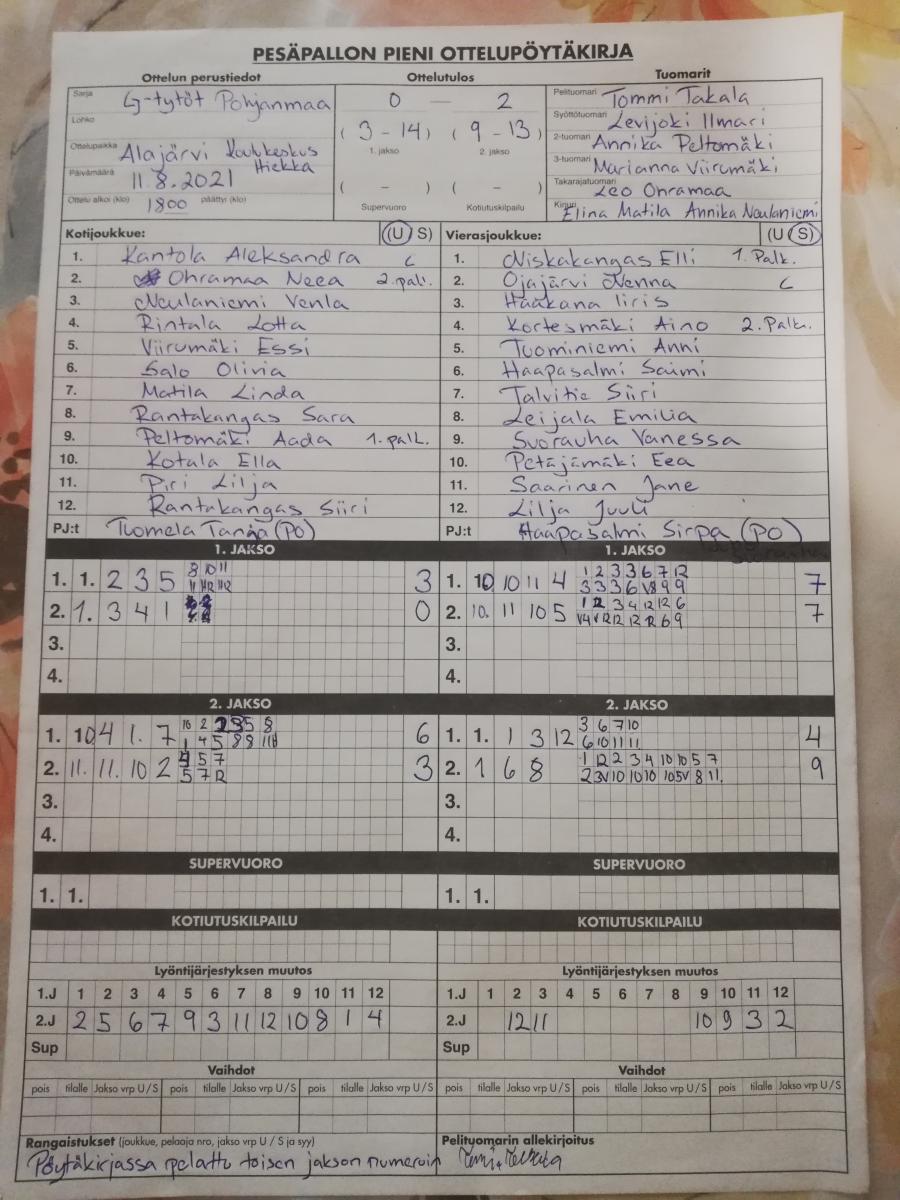 PESÄPALLON PIENI OTTELUPÖYTÄKIRJA
Ottelun perustiedot Ottelutulos Tuomarit
Sarja G-tytöt Pohjanmaa
Lohko
Ottelupaikka Alajärvi Koulukeskus Hiekka
Päivämäärä 11.8.2021
Ottelu alkoi (klo) 1800 päättyi (klo)
0 — 2
(3 - 14) (9 - 13)
1. jakso 2. jakso
( - ) ( - )
Supervuoro Kotiutuskilpailu
Pelituomari Tommi Takala
Syöttötuomari Levijoki Ilmari
2-tuomari Annika Peltomäki
3-tuomari Marianna Viirumäki
Takarajatuomari Leo Ohramaa
Kirjuri Elina Matila Annika Neulaniemi
Kotijoukkue: (U S)
1. Kantola Aleksandra C
2. Ohramaa Neea 2.palk.
3. Neulaniemi Venla
4. Rintala Lotta
5. Viirumäki Essi
6. Salo Olivia
7. Matila Linda
8. Rantakangas Sara
9. Peltomäki Aada 1.palk.
10. Kotala Ella
11. Piri Lilja
12. Rantakangas Siiri
PJ:t Tuomela Tanja (PO)
Vierasjoukkue: (U S)
1. Niskakangas Elli 1.Palk.
2. Ojajärvi Nenna C
3. Haakana Iiris
4. Kortesmäki Aino 2.Palk.
5. Tuominiemi Anni
6. Haapasalmi Saimi
7. Talvitie Siiri
8. Leijala Emilia
9. Suorauha Vanessa
10. Petäjämäki Eea
11. Saarinen Jane
12. Lilja Juuli
PJ:t Haapasalmi Sirpa (PO)
1. JAKSO 1. JAKSO
1. 1. 2 3 5 8 10 11 3
11 12 12
2. 1. 3 4 1 0
3.
4.
1. 10 10 11 4 1 2 3 3 6 7 12 7
3 3 3 6 V8 9 9
2. 10. 11 10 5 1 12 3 4 12 12 6 7
V4 V12 12 12 12 6 9
3.
4.
2. JAKSO 2. JAKSO
1. 10 4 1. 7 10 2 2 3 5 8 6
1 4 5 8 8 11
2. 11. 11. 10 2 4 5 7 3
5 7 12
3.
4.
1. 1. 1 3 12 3 6 7 10 4
6 10 11 11
2. 1 6 8 1 12 2 3 4 10 10 5 7 9
2 3V 10 10 10 10 5V 8 11.
3.
4.
SUPERVUORO SUPERVUORO
1. 1. 1. 1.
KOTIUTUSKILPAILU KOTIUTUSKILPAILU
Lyöntijärjestyksen muutos Lyöntijärjestyksen muutos
1.J 1 2 3 4 5 6 7 8 9 10 11 12 1.J 1 2 3 4 5 6 7 8 9 10 11 12
2.J 2 5 6 7 9 3 11 12 10 8 1 4 2.J 12 11 10 9 3 2
Sup Sup
Vaihdot Vaihdot
pois tilalle Jakso vrp U / S pois tilalle Jakso vrp U / S pois tilalle Jakso vrp U / S pois tilalle Jakso vrp U / S pois tilalle Jakso vrp U / S pois tilalle Jakso vrp U / S
Rangaistukset (joukkue, pelaaja nro, jakso vrp U / S ja syy) Pelituomarin allekirjoitus
Pöytäkirjassa pelattu toisen jakson numeroin